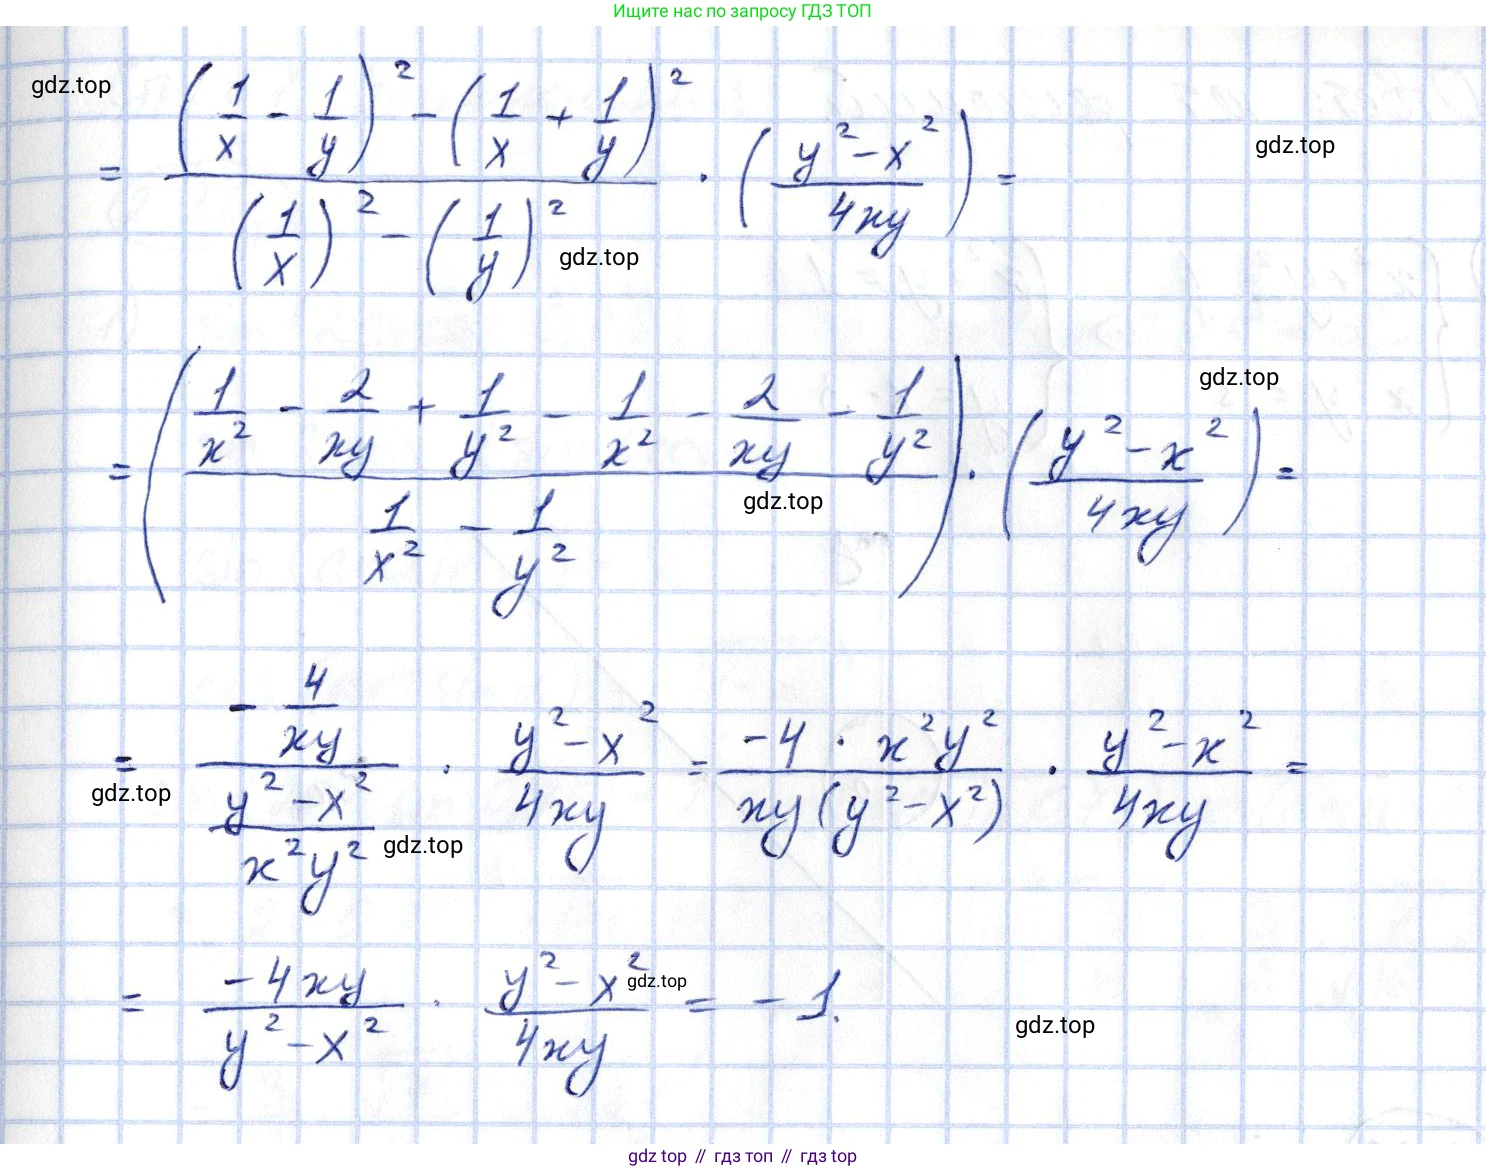 Ищите нас по запросу ГДЗ ТОП
gdz.top
= ((1/x - 1/y)² - (1/x + 1/y)²) / ((1/x)² - (1/y)²) · ((y² - x²)/4xy) =
gdz.top
gdz.top
= ((1/x² - 2/xy + 1/y² - 1/x² - 2/xy - 1/y²) / (1/x² - 1/y²)) · ((y² - x²)/4xy) =
gdz.top
gdz.top
= (-4/xy) / ((y² - x²)/x²y²) · (y² - x²)/4xy = (-4 · x²y²)/(xy(y² - x²)) · (y² - x²)/4xy =
gdz.top
gdz.top
= (-4xy)/(y² - x²) · (y² - x²)/4xy = -1.
gdz.top
gdz.top
gdz top // гдз топ // гдз top